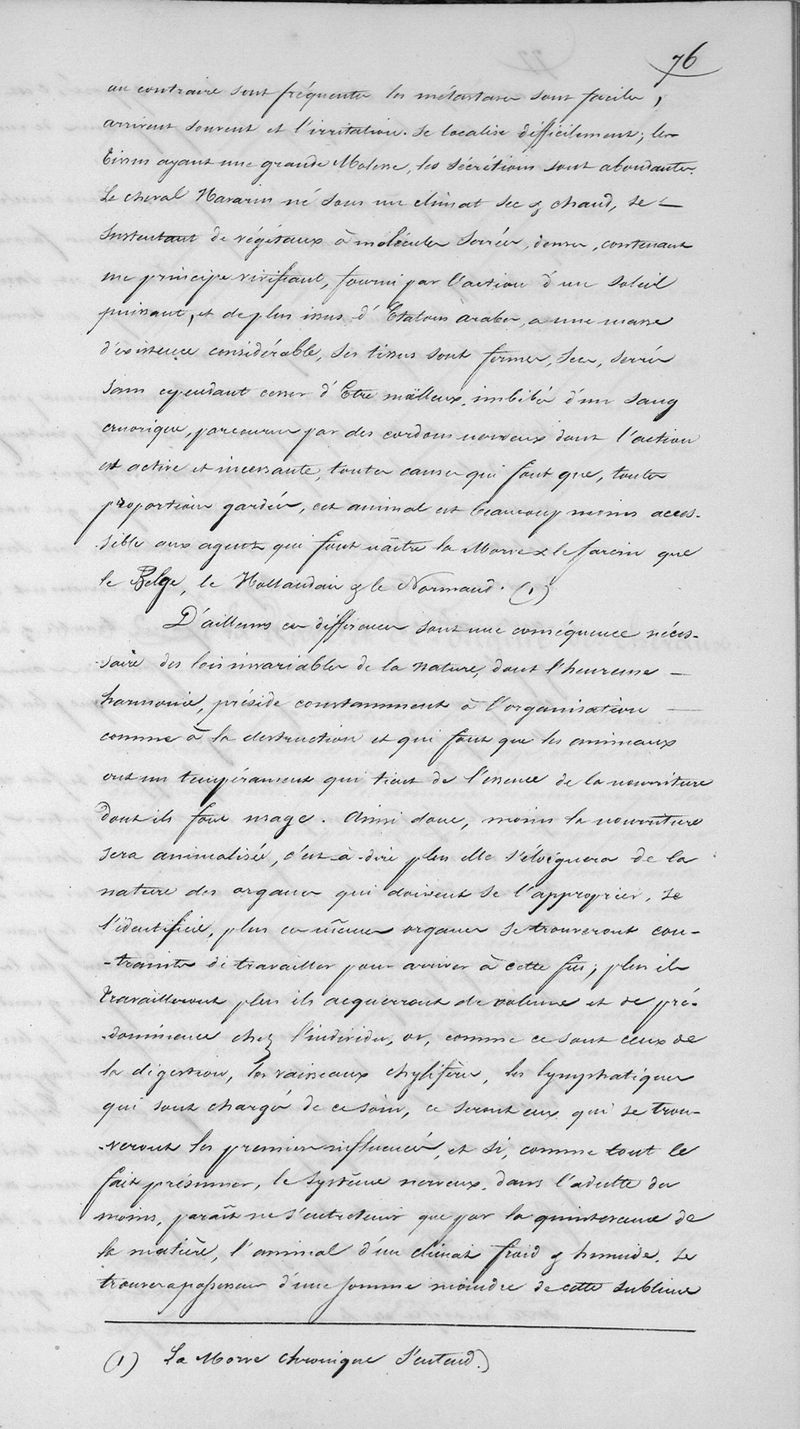 76
au contraire sont fréquentes les métastases sont faciles,
arrivent souvent et l'irritation se localise difficilement; les
tissus ayant une grande Molesse, les sécrétions sont abondantes.
Le cheval Navarin né sous un climat sec & chaud, se
sustentant de végétaux à molécules serrées, denses, contenant
une principe vivifiant, fourni par l'action d'un soleil
puissant, et de plus issus d'Etalons arabes, a une masse
d'existence considérable, ses tissus sont fermes, secs, serrés
sans cependant cesser d'Etre mälleux, imbibés d'un sang
cruorique, parcourus par des cordons nerveux dont l'action
est active et incessante, toutes causes qui font que, toutes
proportions gardées, cet animal est beaucoup moins acces-
-sible aux agents qui font naître la Morve & le farcin que
le Belge, le Hollandais & le Normand. (1)
D'ailleurs ces différences sont une conséquence néces-
-saire des lois invariables de la nature, dont l'heureuse —
harmonie, préside constamment à l'organisation —
comme à la destruction et qui font que les animaux
ont un tempérament qui tient de l'essence de la nourriture
dont ils font usage. Ainsi donc, moins la nourriture
sera animalisée, c'est-à-dire plus elle s'éloignera de la
nature des organes qui doivent se l'approprier, se
l'identifier, plus ces mêmes organes se trouveront con-
-traints de travailler pour arriver à cette fin; plus ils
travailleront plus ils acquerront de volume et de pré-
-dominence chez l'individu, or, comme ce sont ceux de
la digestion, les vaisseaux chylifères, les lymphatiques
qui sont chargés de ce soin, ce seront eux qui se trou-
-veront les premiers influencés, et si, comme tout le
fait présumer, le système nerveux, dans l'adulte du
moins, paraît ne s'entretenir que par la quintessence de
la matière, l'animal d'un climat froid & humide, se
trouvera possesseur d'une somme moindre de cette sublime
(1) La Morve chronique s'entend.)